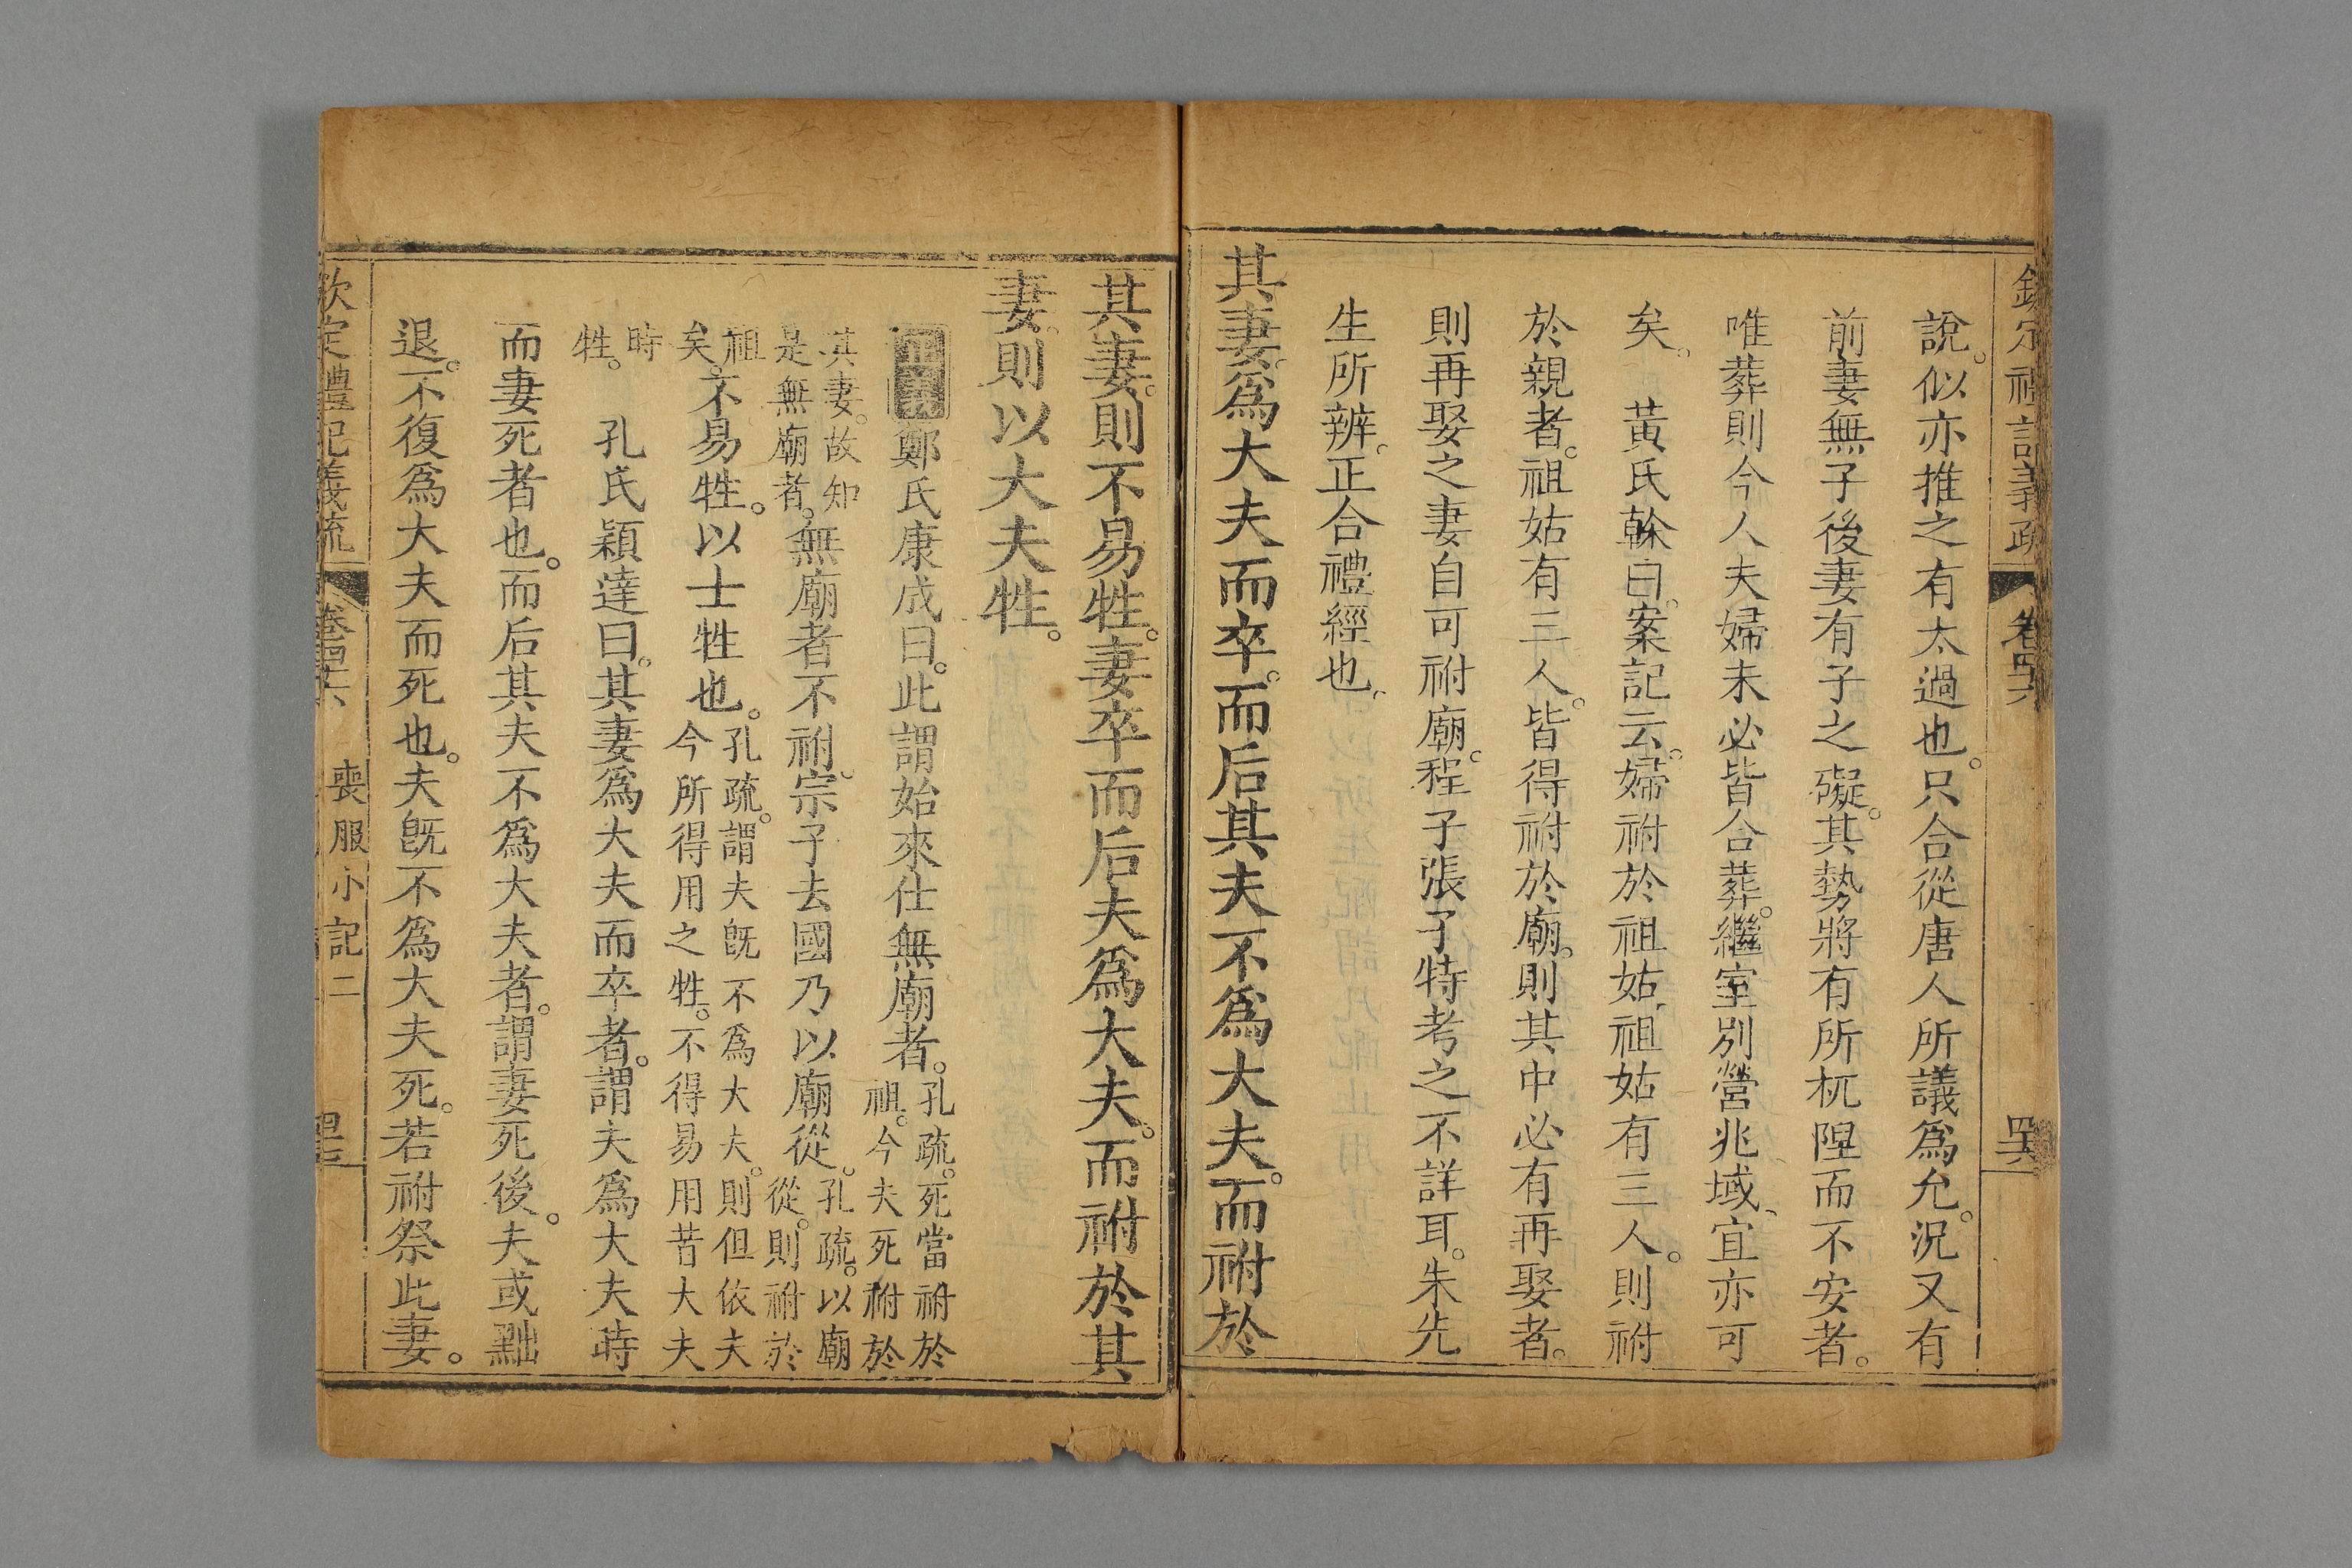 說。似亦推之有太過也。只合從唐人所議為允。況又有
前妻無子後妻有子之礙。其勢將有所杌隉而不安者。
唯葬則今人夫婦未必皆合葬。繼室別營兆域、宜亦可
矣。 黃氏榦曰。案記云。婦祔於祖姑、祖姑有三人。則祔
於親者。祖姑有三人。皆得祔於廟。則其中必有再娶者。
則再娶之妻自可祔廟。程子張子特考之不詳耳。朱先
生所辨、正合禮經也、
其妻。為大夫而卒。而后其夫不為大夫。而祔於
其妻。則不易牲。妻卒而后夫為大夫。而祔於其
妻。則以大夫牲。
正義 鄭氏康成曰。此謂始來仕無廟者。孔疏。死當祔於
祖。今夫死祔於
其妻。故知
是無廟者。無廟者不祔、宗子去國乃以廟從。孔疏。以廟
從。則祔於
祖
矣。不易牲。以士牲也。孔疏。謂夫旣不為大夫。則但依夫
今所得用之牲。不得易用昔大夫
時
牲。 孔氏穎達曰。其妻為大夫而卒者。謂夫為大夫時
而妻死者也。而后其夫不為大夫者。謂妻死後。夫或黜
退。不復為大夫而死也。夫旣不為大夫死。若祔祭此妻。
欽定禮記義疏 卷四十六 喪服小記二